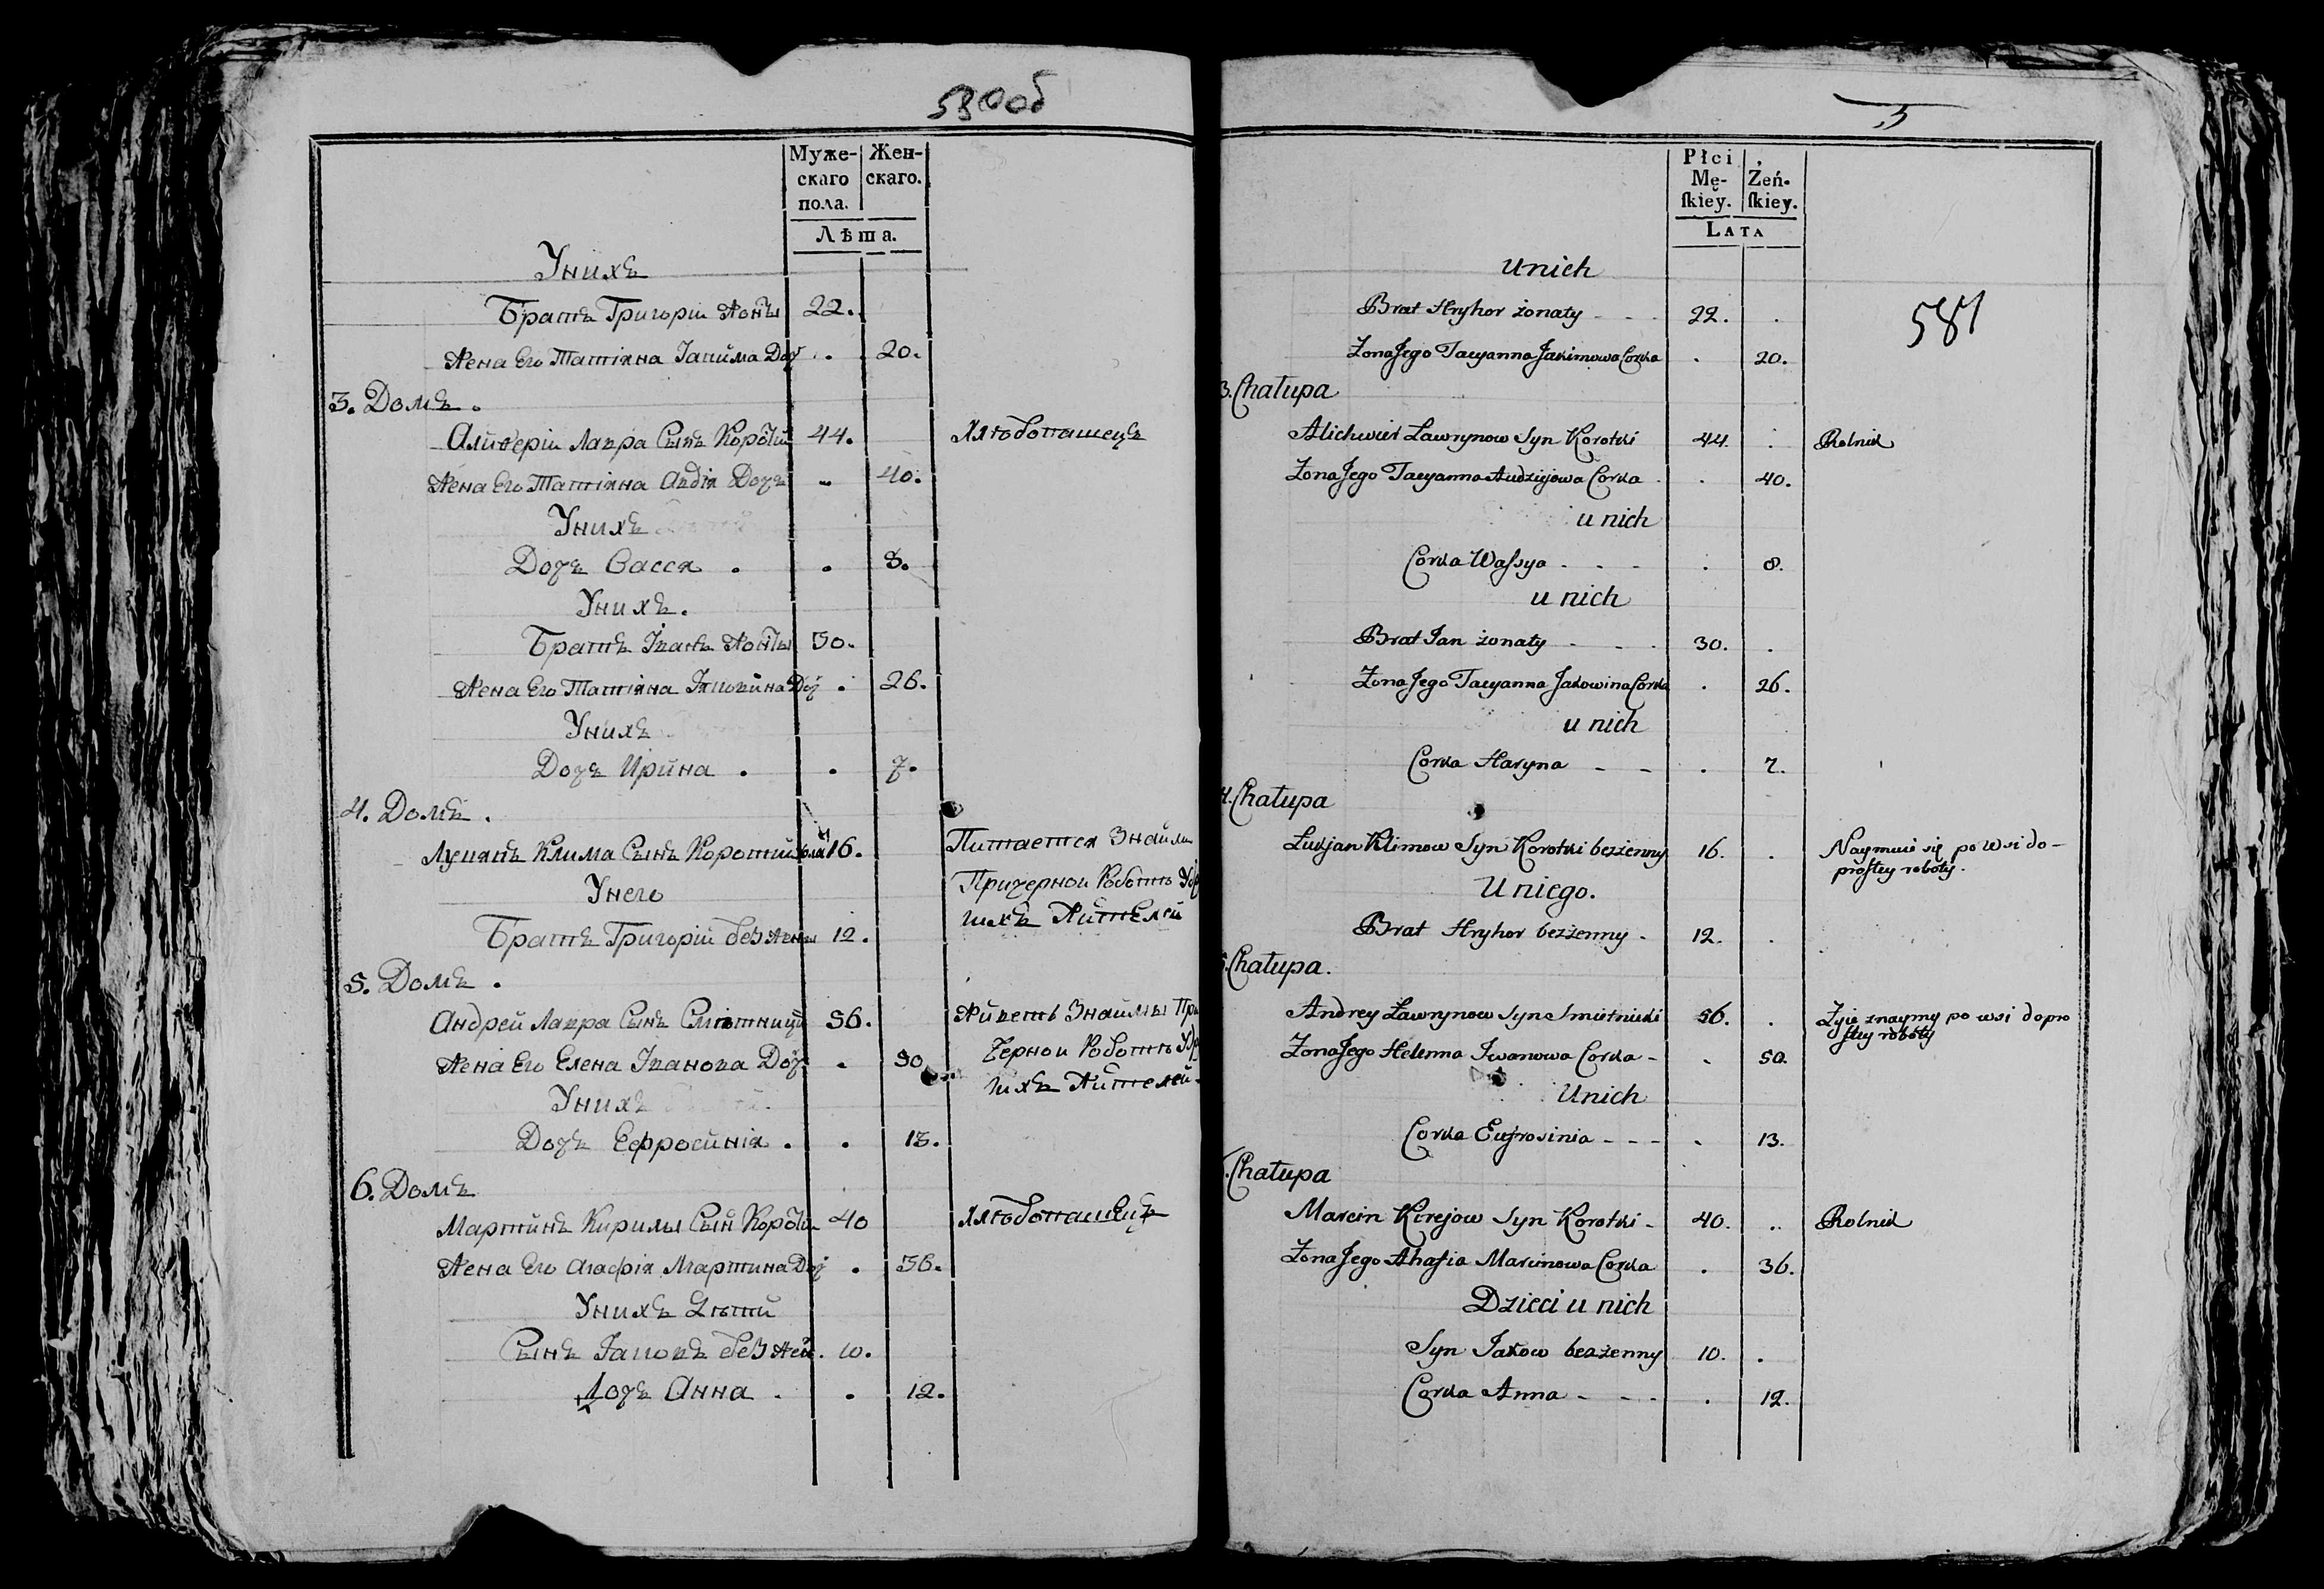 580об
Муже-
скаго
пола.
Жен-
скаго.
Лѣта.
Унихъ
Братъ Григорій Жонты 22.
Жена Его Татіяна Іакима Доч . 20.
3. Домъ.
Алиѳерій Лавра Сынъ Короткій 44. Хлѣбопашецъ
Жена Его Татіяна Авдія Дочъ 40.
Унихъ
Дочъ Васса . . 8.
Унихъ.
Братъ Іванъ Жонты 30.
Жена Его Татіяна Доч . 26.
Унихъ
Дочъ Ирина . . 7.
4. Домъ.
Лукянъ Клима Сынъ Короткій 16. Питается Знайми
Унего При черной Роботѣ
Братъ Григорій без жены 12. Жителей
5. Домъ.
Андрей Лавра Сынъ Смѣтницкій 56. Живетъ Знаймы При
Жена Его Елена Іванова Доч . 50 Черной Роботѣ
Унихъ Жителей.
Дочъ Ефросинія . . 13.
6. Домъ
Мартинъ Кирилы Сын Коротки 40 Хлѣбопашецъ
Жена Его Агафія Мартина Доч . 36.
Унихъ Дѣти
Сынъ Іаковъ без жен. 10.
Дочъ Анна . . 12.
Płci
Mę-
ſkiey.
Żeń-
ſkiey.
LATA
581
u nich
Brat Hryhor żonaty - - - 22. .
Żona Jego Tacyanna Jakimowa Corka . 20.
3. Chałupa
Alichwier Ławrynow Syn Korotki 44. . Rolnik
Żona Jego Tacyanna Audziejowa Corka . 40.
u nich
Corka Waſsya - - - . 8.
u nich
Brat Jan żonaty - - - 30. .
Żona Jego Tacyanna Jakowina Corka . 26.
u nich
Corka Haryna - - . 7.
4. Chałupa
Łukjan Klimow Syn Korotki bezżenny 16. . Naymuie się po wsi do-
proſtey roboty.
U niego.
Brat Hryhor bezżenny - 12. .
5. Chałupa.
Andrey Ławrynow Syn Smietnicki 56. . Żyie znaymy po wsi do pro
ſtey roboty
Żona Jego Helenna Iwanowa Corka - . 50.
U nich
Corka Eufrosinia - - - . 13.
. Chałupa
Marcin Kirejow Syn Korotki - 40. .. Rolnik
Żona Jego Ahafia Marcinowa Corka . 36.
Dzieci u nich
Syn Jakow bezżenny 10. .
Corka Anna - - - . 12.